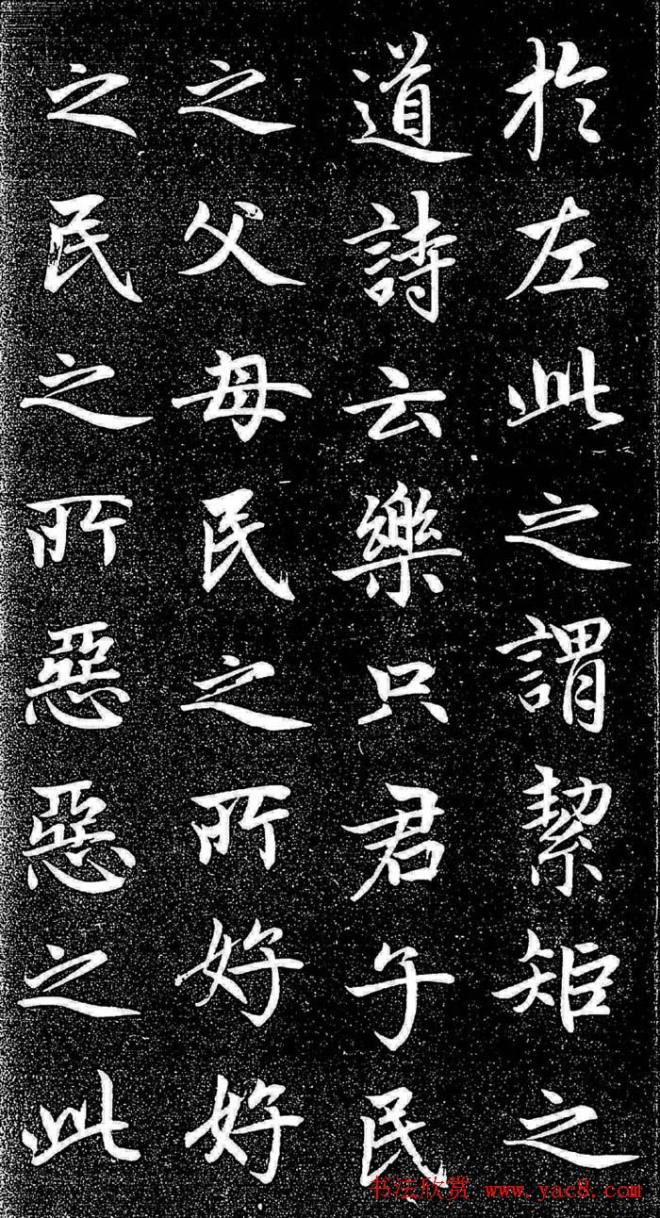 於左此之謂絜矩之
道詩云樂只君子民
之父母民之所好好
之民之所惡惡之此
书法欣赏 www.yac8.com